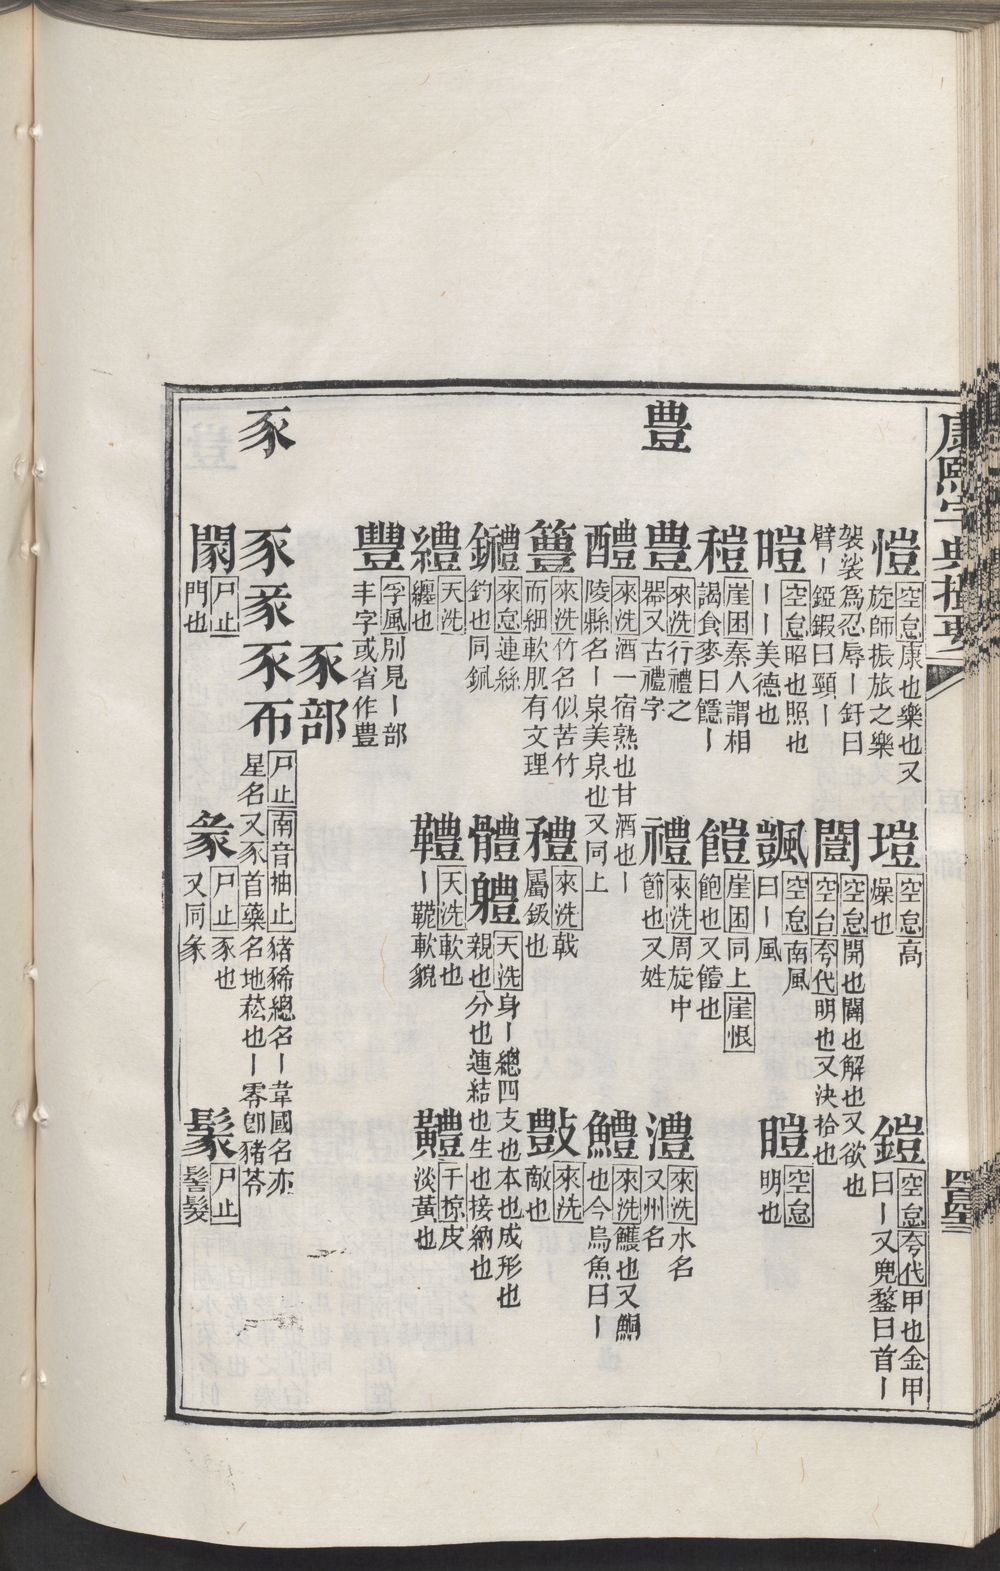 康熙字典撮要
愷 空怠康也樂也又旋師振旅之樂
塏 空怠高燥也
鎧 空怠夸代甲也金甲曰一又兜鍪曰首一
袈裟爲忍辱一釬曰臂一錏鍜曰頸一
闓 空怠開也闢也解也又欲也空台夸代明也又決拾也
暟 空怠昭也照也一一美德也
颽 空怠南風曰一風
瞪 空怠明也
䅱 崖困秦人謂相謁食麥曰䭓一
饐 崖困同上崖恨飽也又饐也
豊
豊 來洗行禮之器又古禮字
禮 來洗周旋中節也又姓
澧 來洗水名又州名
醴 來洗酒一宿熟也甘酒也一陵縣名一泉美泉也又同上
鱧 來洗鱯也又鮦也今烏魚曰一
籩 來洗竹名似苦竹而細軟肌有文理
禮 來洗戟屬鈑也
敳 來洗敵也
鑗 來怠連絲釣也同鈲
體軆 天洗身一總四支也本也成形也親也分也連結也生也接納也
纏 天洗纏也
軆 天洗軟也一䩺軟貌
黸 干掠皮淡黃也
豐 孚風別見一部丰字或省作豊
豕部
豕
豕 尸止南音抽止豬豨總名一韋國名亦星名又豕首藥名地菘也一零卽豬苓
閿 尸止門也
彖 尸止豕也又同彖
鬃 尸止髻髮